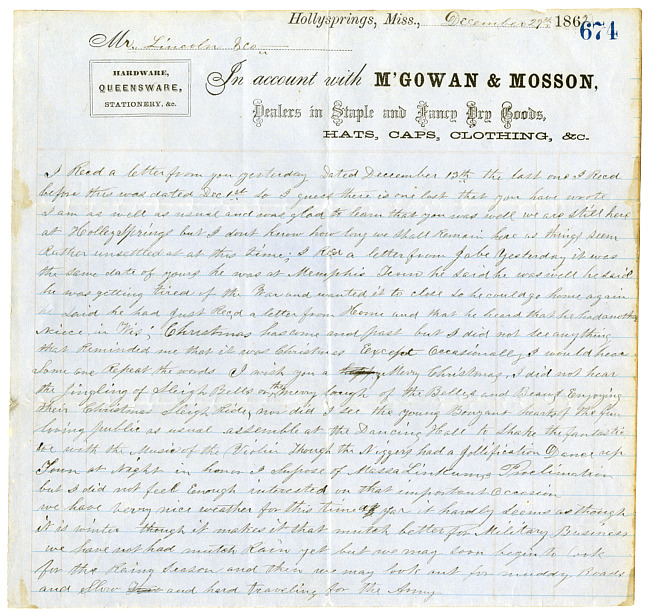 Hollysprings, Miss., December 29th 1862
674
Mr. Lincoln &co
HARDWARE,
QUEENSWARE,
STATIONERY, &c.
In account with M'GOWAN & MOSSON,
Dealers in Staple and Fancy Dry Goods,
HATS, CAPS, CLOTHING, &c.
I Recd a letter from you yesterday dated December 13th the last one I Recd
before this was dated Dec 1st so I guess there is one lost that you have wrote
I am as well as usual and was glad to learn that you was well we are still here
at Holley Springs but I dont know how long we shall remain here as things seem
Rather unsettled at at this time, I Recd a letter from Jabe yesterday it was
the same date of yours he was at Memphis Tenn he said he was well he said
he was getting tired of the War and wanted it to close so he could go home again
said he had just Recd a letter from Home and that he heard that he had another
Niece in Wis, Christmas has come and past but I did not see anything
that Reminded me that it was Christmas Except Occasionally I would hear
Some one Repeat the words I wish you a Merry Christmas, I did not hear
the jingling of Sleigh Bells or the merry laugh of the Bellys and Beaus Enjoying
their Christmas Sleigh Ride, nor did I see the young Bouyant hearts of the fun
loving public as usual assemble at the Dancing Hall to Shake the fantastic
toe with the Music of the Violin Though the Niggers had a Jollification Dance up
Town at Night in honor I Supose of Massa Linkums Proclimation
but I did not feel Enough interested on that important Occasion
we have very nice weather for this time of year it hardly seems as though
it is winter though it makes it that mutch better for Military Business
we have not had mutch Rain yet but we may soon begin to look
for the Rainy Season and then we may look out for muddy Roads
and Slow and hard traveling for the Army